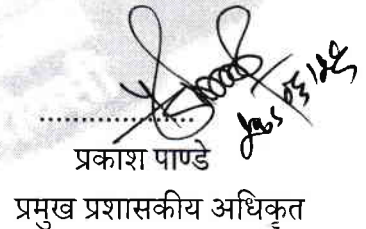 ....................
प्रकाश पाण्डे
प्रमुख प्रशासकीय अधिकृत